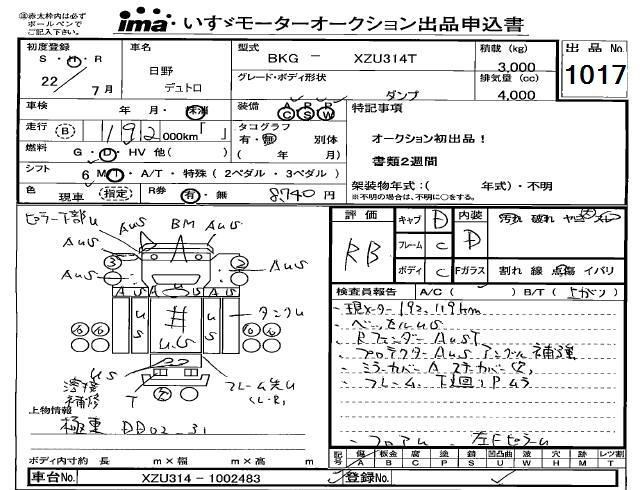 ※赤太枠内は必ず
ボールペンで
ご記入下さい。
ima いすゞモーターオークション出品申込書
初度登録
S・H・R
22 7月
車名
日野
デュトロ
型式
BKG － XZU314T
グレード・ボディ形状
ダンプ
積載 (kg)
3,000
排気量 (cc)
4,000
出品No.
1017
車検 年 月・抹消
装備 A/C P/S P/W
走行 B 192 000km「 」
タコグラフ
有・無 別体
( 年 月)
燃料 G・D・HV 他( )
シフト 6 MT・A/T・特殊(2ペダル・3ペダル)
色 現車 (指定) R券 有・無 8,740円
特記事項
オークション初出品！
書類2週間
架装物年式：( 年式)・不明
※不明の場合は、不明に○をする。
評価
RB
キャブ D
フレーム C
ボディ C
内装 D
汚れ 破れ ヤニ コゲ スレ
Fガラス 割れ 線 点傷 イバリ
検査員報告 A/C( ) B/T(上がり)
現メーター192,119km
ベッセルUS
RフェンダーAUST
プロテクターAUS アングル補強
ミラーカバーA ステーカバー欠
フレーム、下廻りPムラ
フロアU 左FピラーU
ピラー下部U
AUS
BM AUS
AUS
AUS
AUS
3
2
A US
A US
US
#
U.S
US
タンクU
6 6
6 6
US
溶接
補修
T
フレーム先U
(L・R)
上物情報
極東 DD02-31
ボディ内寸約 長 m×幅 m×高 m
記号 傷 A 板金 B 腐 C 塗 P 錆 S 凹凸曲 U 波 W 穴 H 跡 M レツ割 T
車台No. XZU314－1002483
登録No.